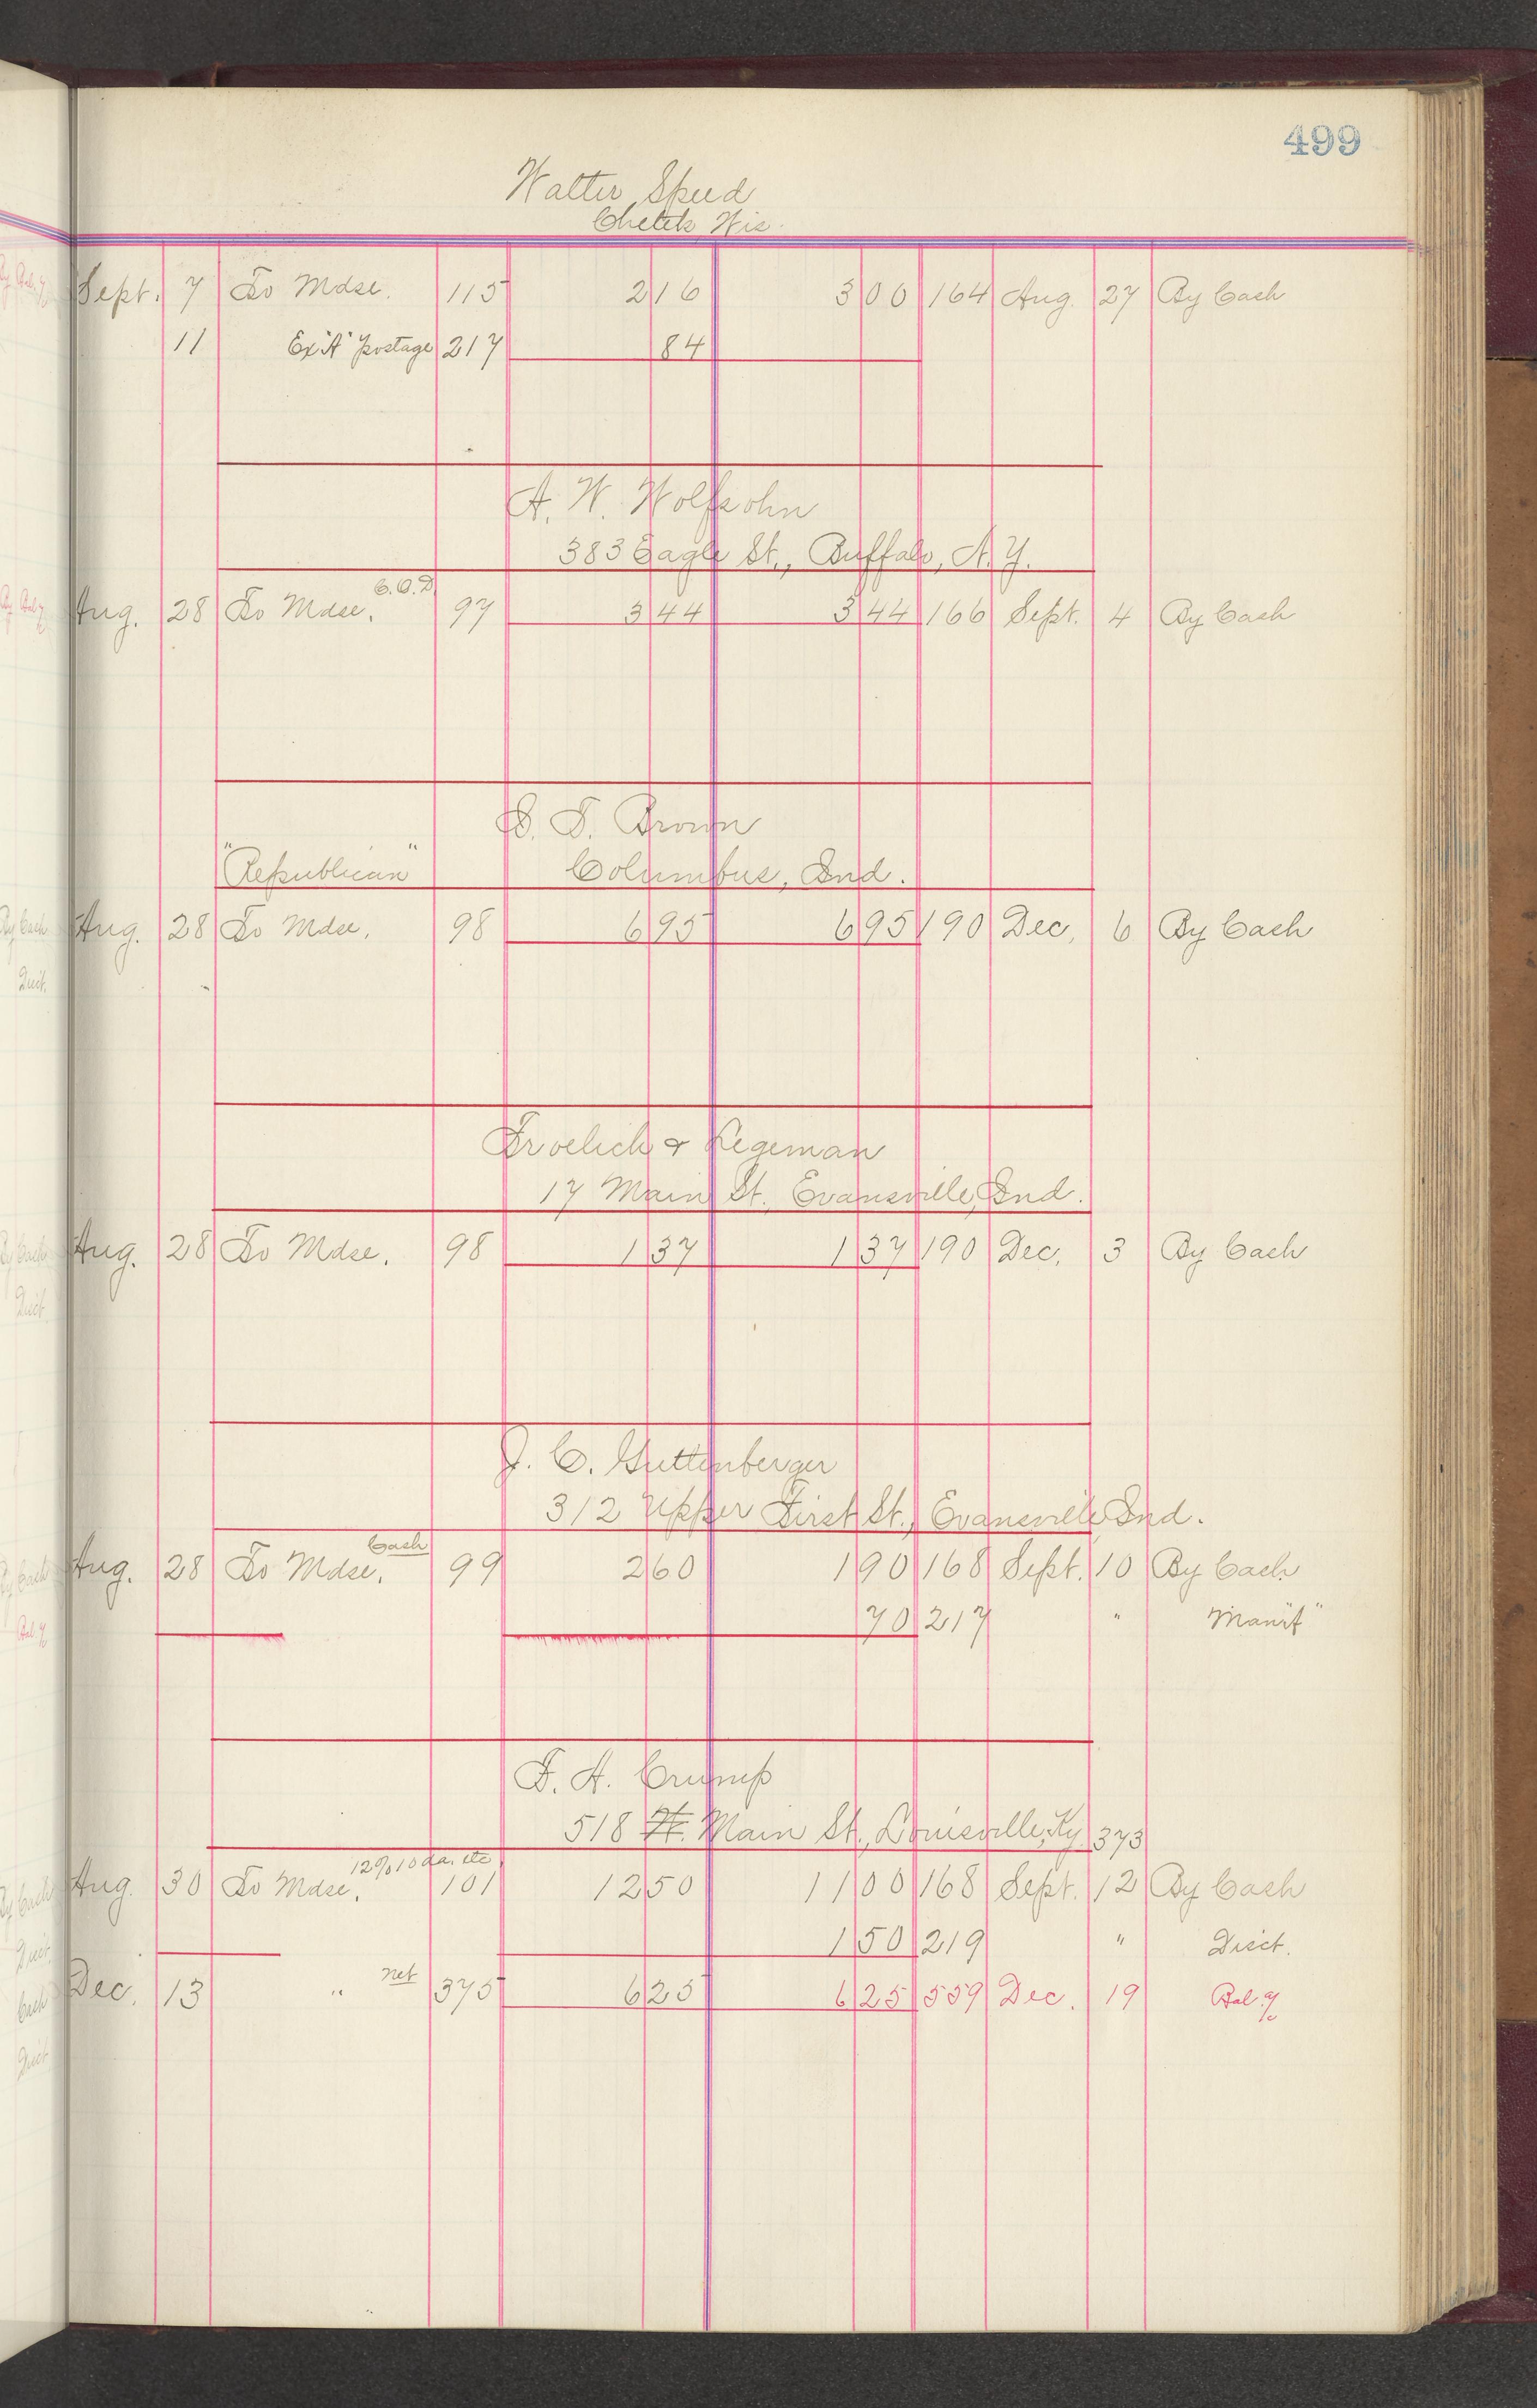 499
Walter Speed
Chetek, Wis.
Sept. 7 To Mdse. 115 2 16 3 00 164 Aug. 27 By Cash
11 Ex "A" Postage 217 84
A. W. Wolfsohn
383 Eagle St., Buffalo, N.Y.
Aug. 28 To Mdse. C.O.D. 97 3 44 3 44 166 Sept. 4 By Cash
I. T. Brown
"Republican" Columbus, Ind.
Aug. 28 To Mdse. 98 6 95 6 95 190 Dec. 6 By Cash
Froelich & Legeman
17 Main St. Evansville, Ind.
Aug. 28 To Mdse. 98 1 37 1 37 190 Dec. 3 By Cash
J. C. Guttenberger
312 Upper First St., Evansville, Ind.
Aug. 28 To Mdse. Cash 99 2 60 1 90 168 Sept. 10 By Cash
70 217 " "Manf"
F. A. Crump
518 W. Main St., Louisville, Ky. 373
Aug. 30 To Mdse. 12% 10 da. etc. 101 12 50 11 00 168 Sept. 12 By Cash
1 50 219 " Disct.
Dec. 13 " net 375 6 25 6 25 559 Dec. 19 Bal. %